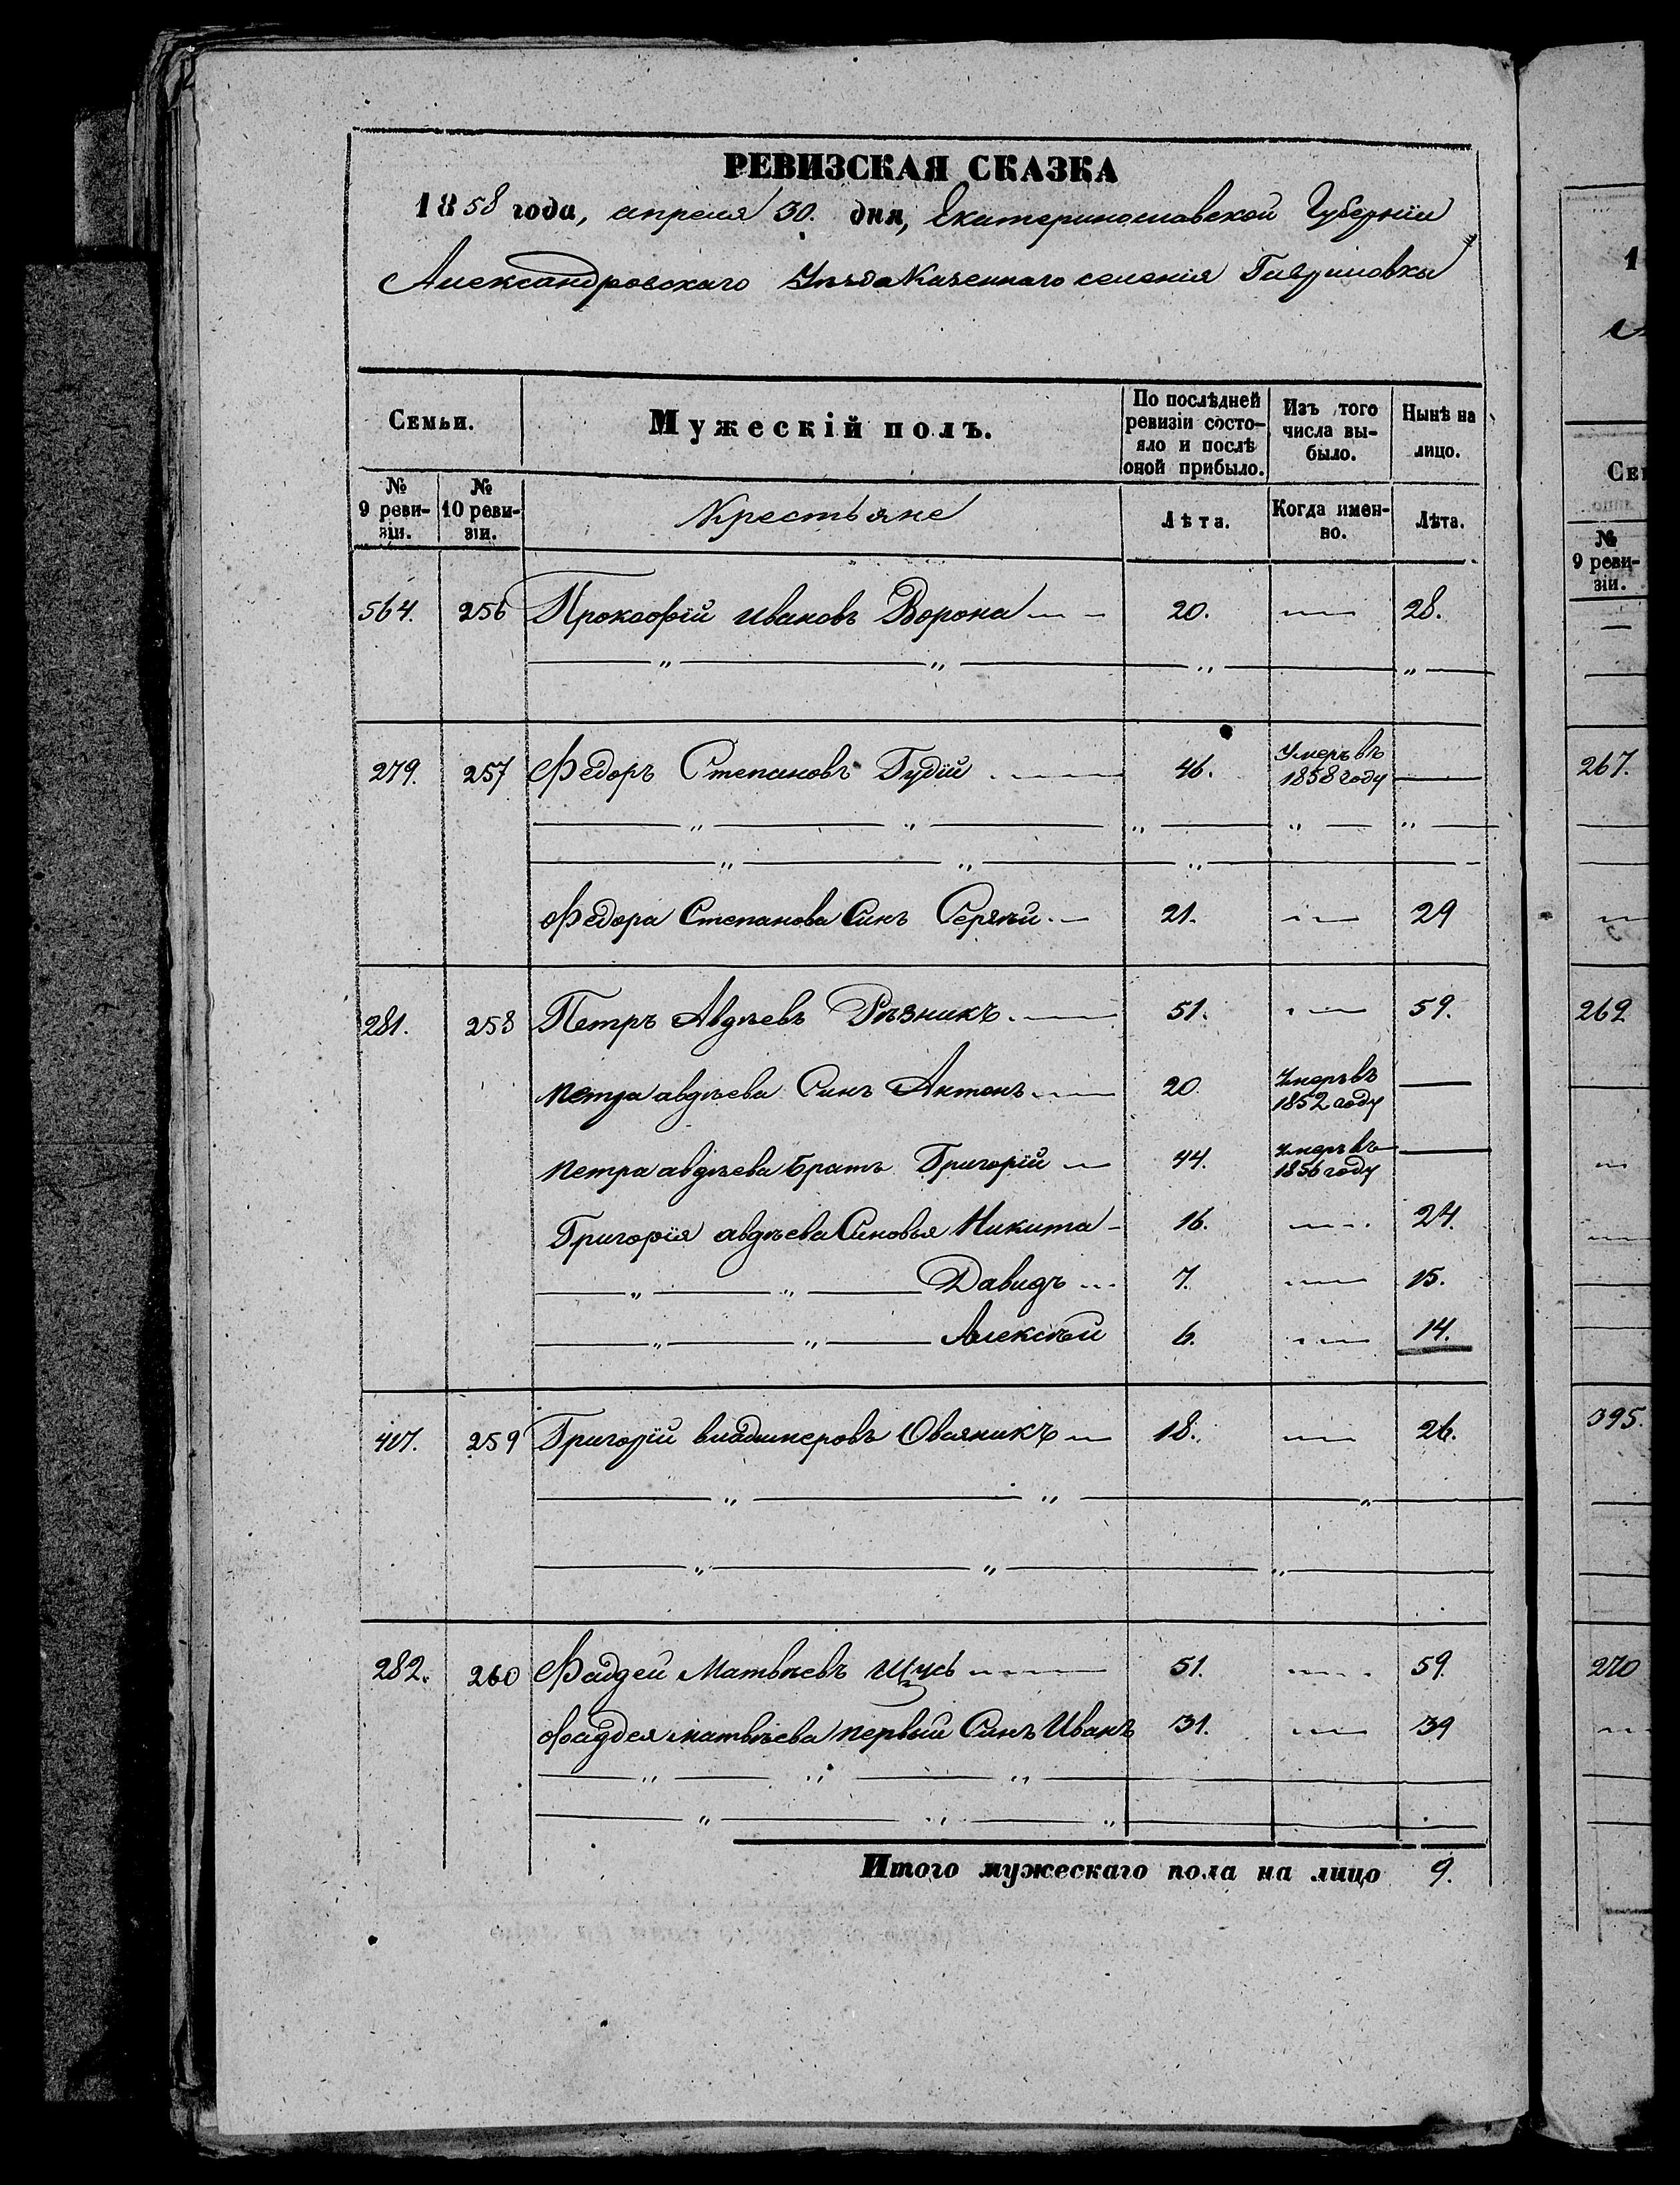 РЕВИЗСКАЯ СКАЗКА
1858 года, апреля 30. дня, Екатеринославской Губерніи
Александровскаго Уѣзда Казеннаго селенія Гавриловки
Семьи. Мужескій полъ. По послѣдней ревизіи состояло и послѣ оной прибыло. Изъ того числа выбыло. Нынѣ на лицо.
№ 9 ревизіи. № 10 ревизіи. Крестьяне Лѣта. Когда именно. Лѣта.
564. 256 Прокофій Ивановъ Ворона 20. 28.
279. 257 Федоръ Степановъ Гудій 46. Умеръ въ 1858 году
Федора Степанова Синъ Сергѣй 21. 29
281. 258 Петръ Авдѣевъ Рѣзникъ 51. 59.
Петра авдѣева Синъ Антонъ 20. Умеръ въ 1852 году
Петра авдѣева братъ Григорій 44. Умеръ въ 1856 году
Григорія авдѣева Синовья Никита 16. 24.
Давидъ 7. 15.
Алексѣй 6. 14.
407. 259 Григорій владимеровъ 18. 26.
282. 260 Фаддей Матвѣевъ Щусь 51. 59.
Фаддея матвѣева первый Синъ Иванъ 31. 39
Итого мужескаго пола на лицо 9.
1
№
9 реви-
зіи.
267.
269
395.
270